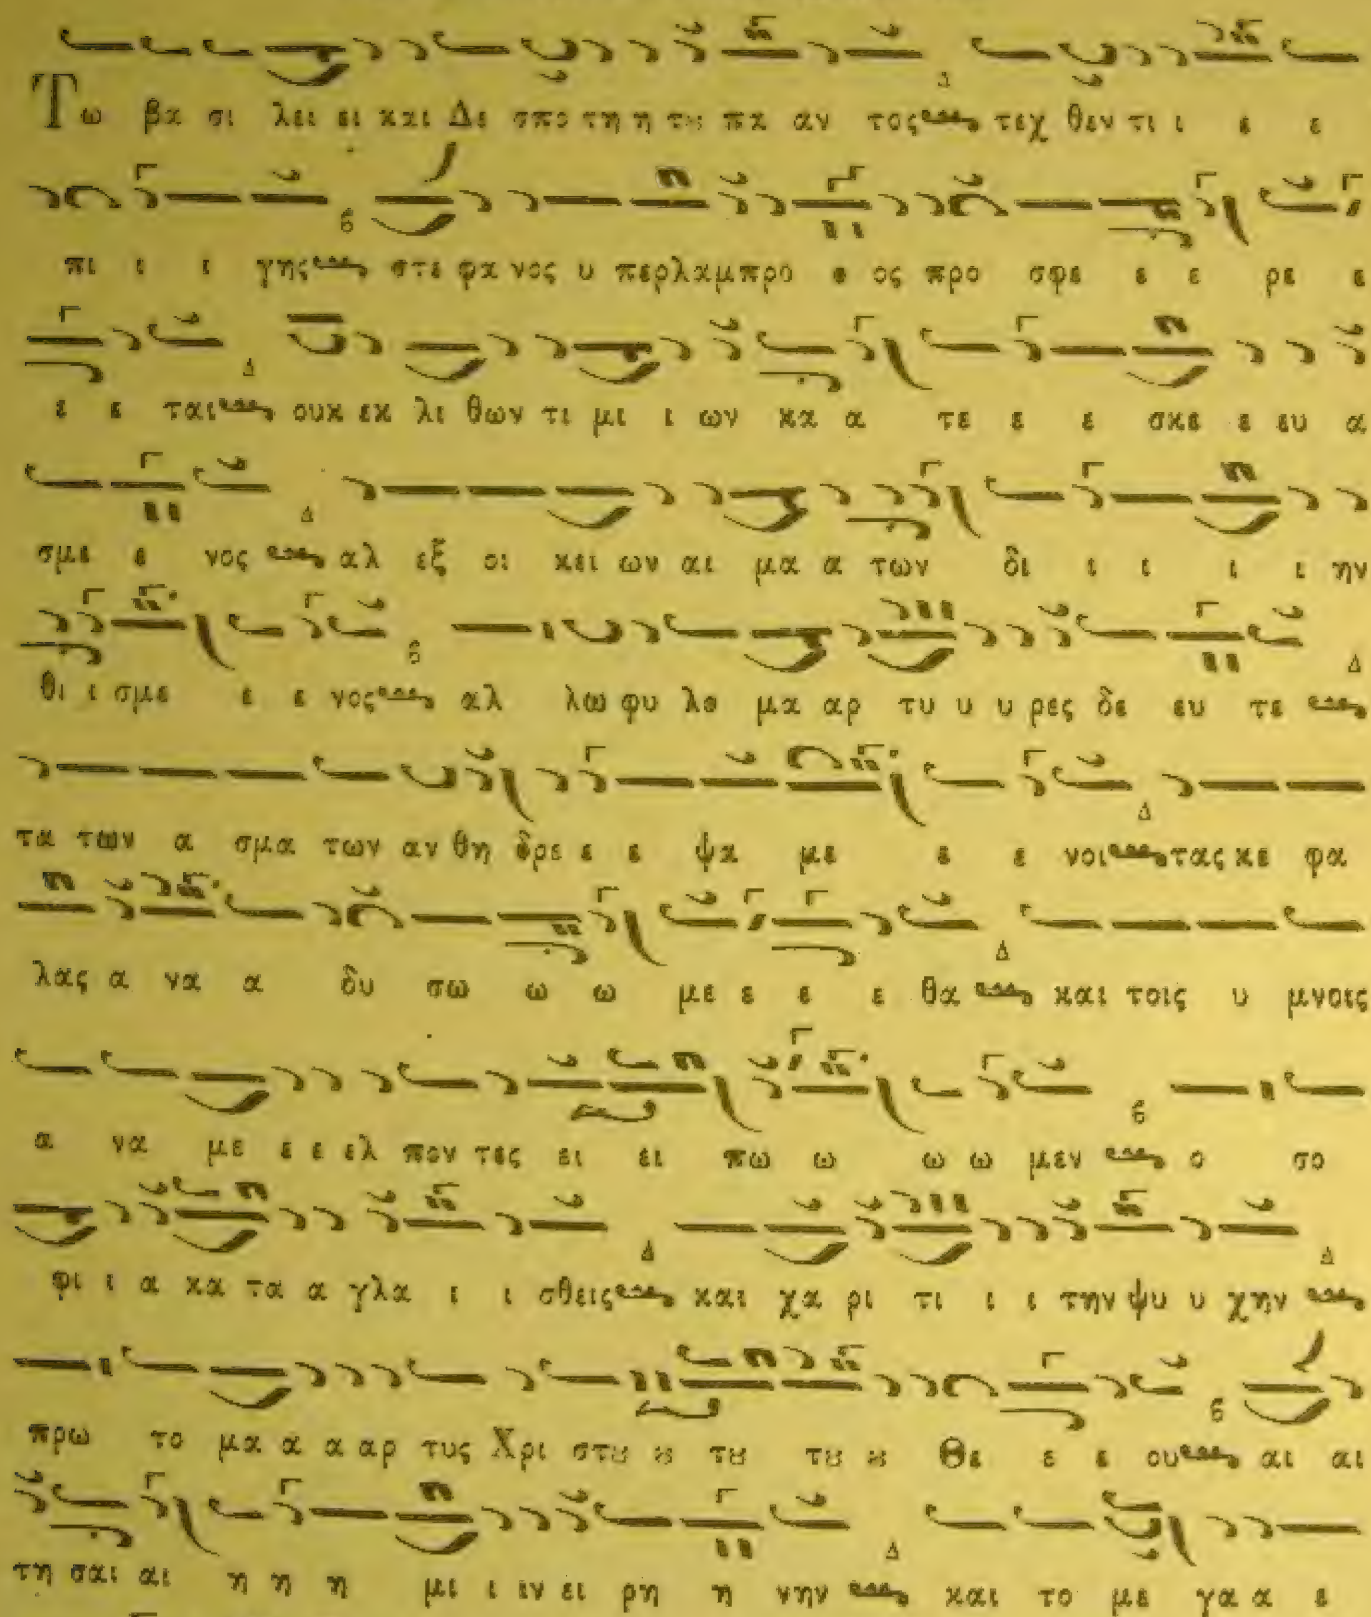 Τω βα σι λει ει και Δε σπο τη η τȣ πα αν τος τεχ θεν τι ι ε ε
πι ι ι γης στε φα νος υ περλαμπρο ο ος προ σφε ε ε ρε ε
ε ε ται ουκ εκ λι θων τι μι ι ων κα α τε ε ε σκε ε ευ α
σμε ε νος αλ εξ οι κει ων αι μα α των δι ι ι ι ι ην
θι ι σμε ε ε νος αλ λω φυ λο μα αρ τυ υ υ ρες δε ευ τε
τα των α σμα των αν θη δρε ε ε ψα με ε ε νοι τας κε φα
λας α να α δυ σω ω ω με ε ε ε θα και τοις υ μνοις
α να με ε ε ελ πον τες ει ει πω ω ω ω μεν ο σο
φι ι α κα τα α γλα ι ι σθεις και χα ρι τι ι ι την ψυ υ χην
πρω το μα α α αρ τυς Χρι στȣ ȣ τȣ τȣ ȣ Θε ε ε ου αι αι
τη σαι αι η η η μι ι ιν ει ρη η νην και το με γα α ε